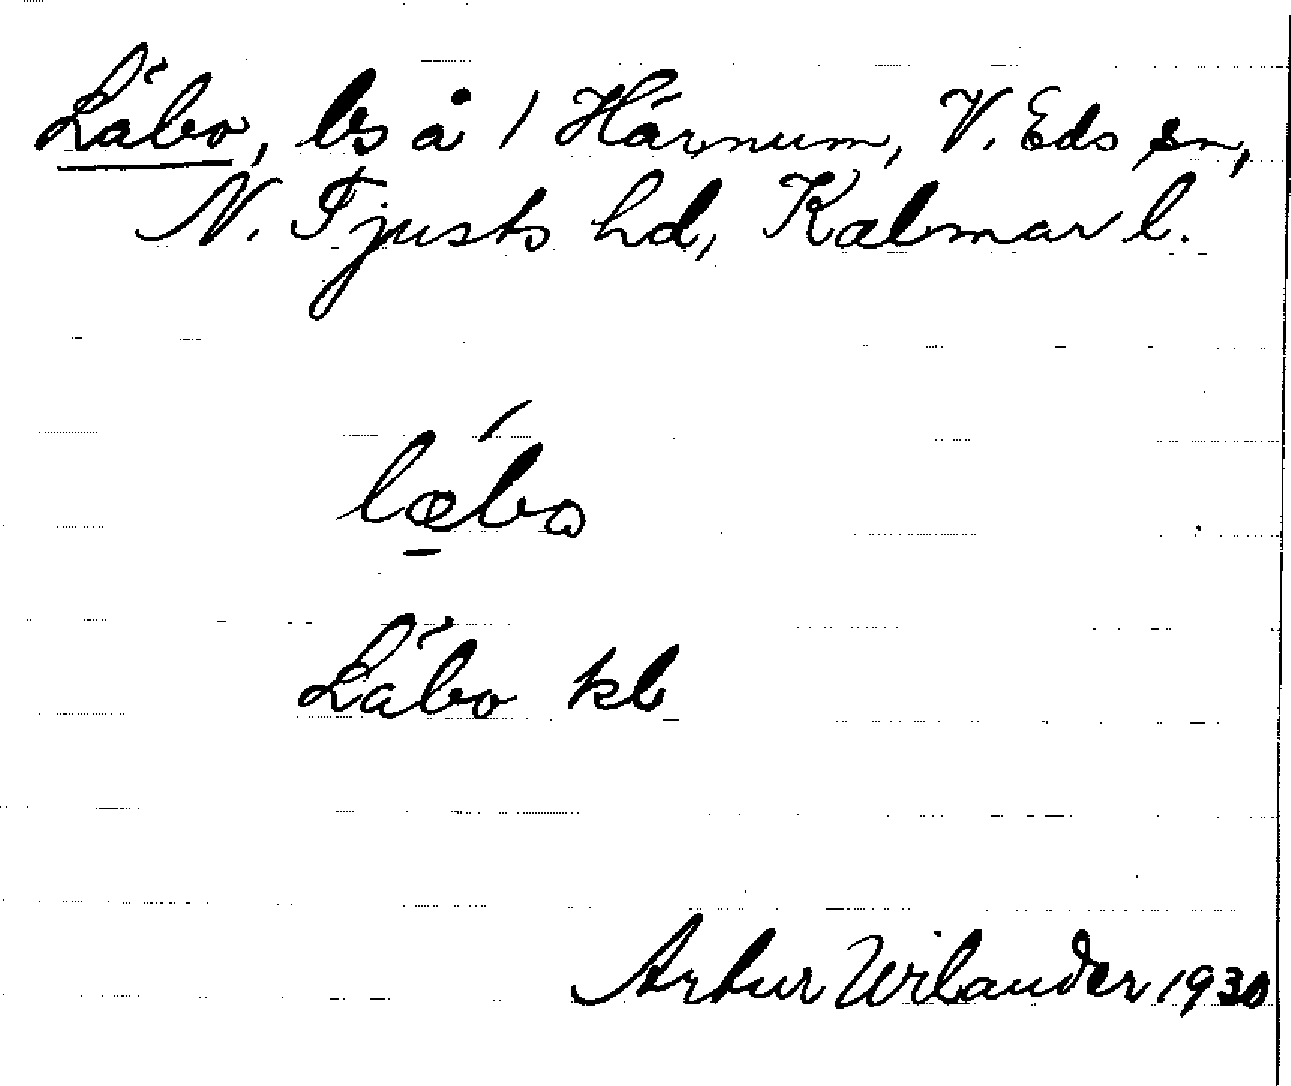 Läbo, ls å 1 Härnum, V. Eds sn,
N. Tjusts hd, Kalmar l.
læbo
Läbo kb
Artur Wilander 1930